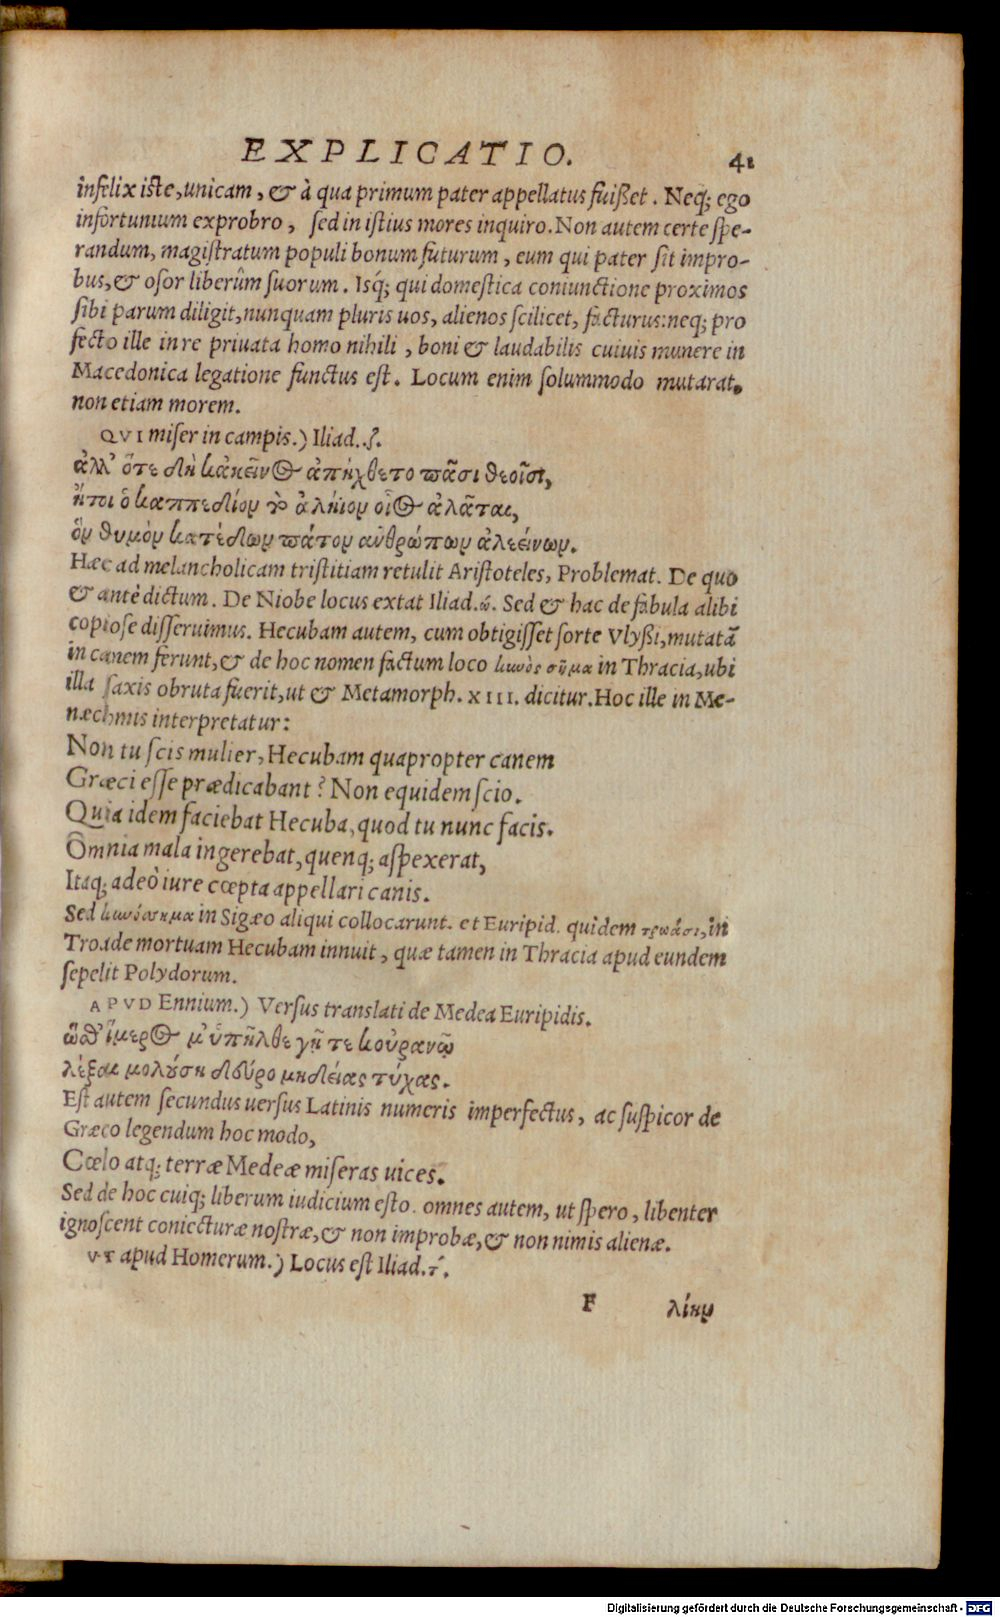 EXPLICATIO. 41
infelix iste, unicam, & à qua primum pater appellatus fuißet. Neq; ego
infortunium exprobro, sed in istius mores inquiro. Non autem certe spe-
randum, magistratum populi bonum futurum, eum qui pater sit impro-
bus, & osor liberûm suorum. Isq́; qui domestica coniunctione proximos
sibi parum diligit, nunquam pluris uos, alienos scilicet, facturus: neq; pro
fecto ille in re priuata homo nihili, boni & laudabilis cuiuis munere in
Macedonica legatione functus est. Locum enim solummodo mutarat,
non etiam morem.
QVI miser in campis.) Iliad. .ζ.
ἀλλ' ὅτε δὴ κἀκεῖνος ἀπήχθετο πᾶσι θεοῖσι,
ἤτοι ὁ καππεδίον τὸ ἀλήϊον οἶος ἀλᾶται,
ὃν θυμὸν κατέδων πάτον ἀνθρώπων ἀλεείνων.
Hæc ad melancholicam tristitiam retulit Aristoteles, Problemat. De quo
& antè dictum. De Niobe locus extat Iliad. ώ. Sed & hac de fabula alibi
copiose disseruimus. Hecubam autem, cum obtigisset sorte Vlyßi, mutatã
in canem ferunt, & de hoc nomen factum loco κυνὸς σῆμα in Thracia, ubi
illa saxis obruta fuerit, ut & Metamorph. XIII. dicitur. Hoc ille in Me-
næchmis interpretatur:
Non tu scis mulier, Hecubam quapropter canem
Græci esse prædicabant? Non equidem scio.
Quia idem faciebat Hecuba, quod tu nunc facis.
Omnia mala ingerebat, quenq; aspexerat,
Itaq; adeò iure cœpta appellari canis.
Sed κυνόσημα in Sigæo aliqui collocarunt. et Euripid. quidem τρωάσι, in
Troade mortuam Hecubam innuit, quæ tamen in Thracia apud eundem
sepelit Polydorum.
APVD Ennium.) Versus translati de Medea Euripidis.
ὥσθ' ἵμερος μ' ὑπῆλθε γῇ τε κοὐρανῷ
λέξαι μολούσῃ δεῦρο μηδείας τύχας.
Est autem secundus uersus Latinis numeris imperfectus, ac suspicor de
Græco legendum hoc modo,
Cœlo atq; terræ Medeæ miseras uices.
Sed de hoc cuiq; liberum iudicium esto. omnes autem, ut spero, libenter
ignoscent coniecturæ nostræ, & non improbæ, & non nimis alienæ.
VT apud Homerum.) Locus est Iliad. τ́.
F λίην
Digitalisierung gefördert durch die Deutsche Forschungsgemeinschaft - DFG